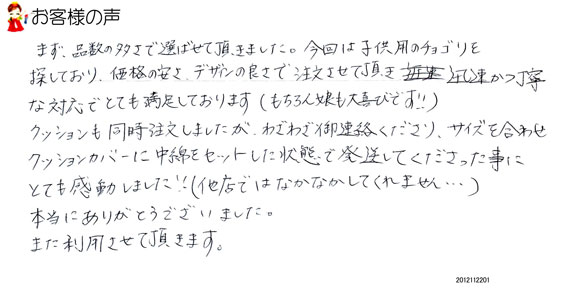 お客様の声
まず、品数の多さで選ばせて頂きました。今回は子供用のチョゴリを
探しており、価格の安さ、デザインの良さで注文させて頂き 迅速かつ丁寧
な対応でとても満足しております(もちろん娘も大喜びです!!)
クッションも同時注文しましたが、わざわざ御連絡くださり、サイズを合わせ
クッションカバーに中綿をセットした状態で発送してくださった事に
とても感動しました!!(他店ではなかなかしてくれません…)
本当にありがとうございました。
また利用させて頂きます。
2012112201